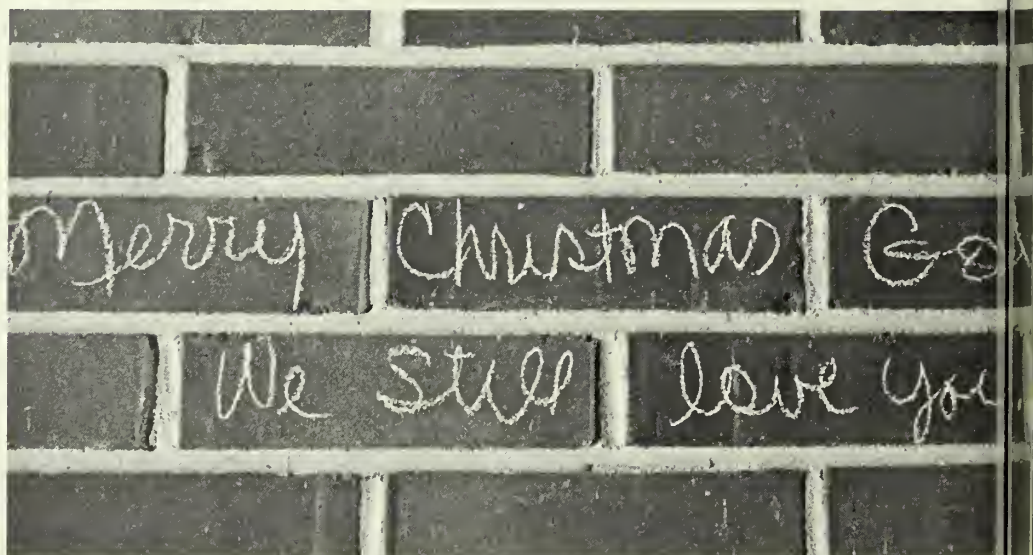 Merry Christmas
We Still love you